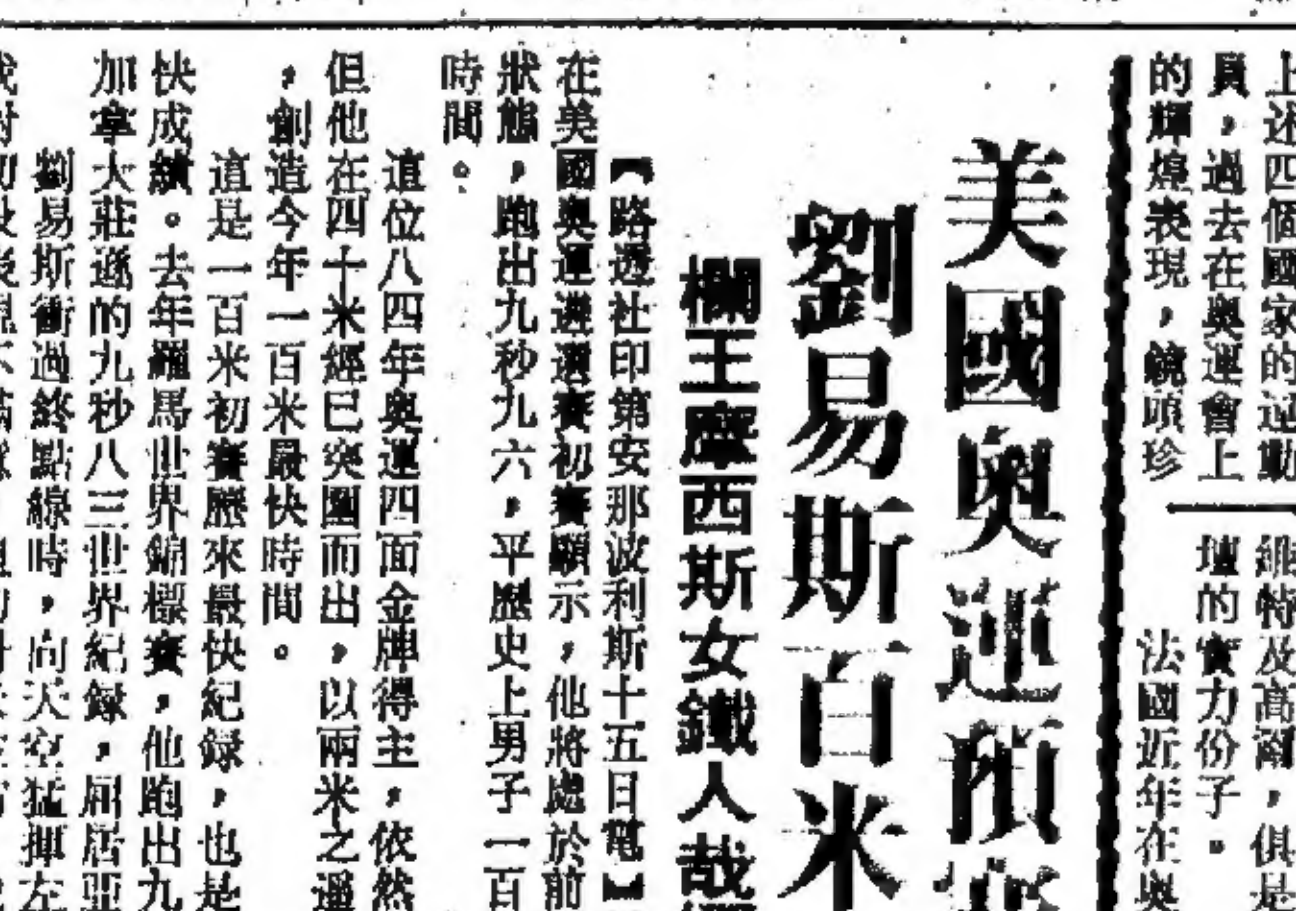 上述四個國家的運動
員，過去在奧運會上
的輝煌表現，鏡頭珍
維特及高爾，俱是
壇的實力份子。
法國近年在奧
美國奧運預賽
劉易斯百米
欄王摩西斯女鐵人哉
【路透社印第安那波利斯十五日電】
在美國奧運遴選賽初賽顯示，他將處於前
狀態，跑出九秒九六，平歷史上男子一百
時間。
道位八四年奧運四面金牌得主，依然
但他在四十米經已突圍而出，以兩米之遙
，創造今年一百米最快時間。
這是一百米初賽歷來最快紀録，也是
快成績。去年羅馬世界錦標賽，他跑出九
加拿大莊遜的九秒八三世界紀録，屈居亞
劉易斯衝過終點線時，向天空猛揮左